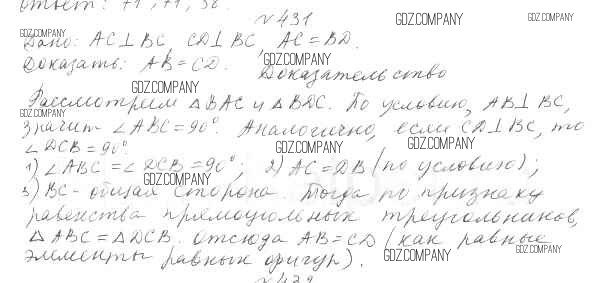 Ответ: 71, 71, 38.
№431
Дано: AC⊥BC, CD⊥BC, AC=BD.
Доказать: AB=CD.
Доказательство
Рассмотрим △BAC и △BDC. По условию, AB⊥BC,
значит ∠ABC=90°. Аналогично, если CD⊥BC, то
∠DCB=90°
1) ∠ABC=∠DCB=90°; 2) AC=DB (по условию);
3) BC-общая сторона. Тогда по признаку
равенства прямоугольных треугольников,
△ABC=△DCB. Отсюда AB=CD (как равные
элементы равных фигур).
№432
GDZ.COMPANY
GDZ.COMPANY
GDZ.COMPANY
GDZ.COMPANY
GDZ.COMPANY
GDZ.COMPANY
GDZ.COMPANY
GDZ.COMPANY
GDZ.COMPANY
GDZ.COMPANY
GDZ.COMPANY
GDZ.COMPANY